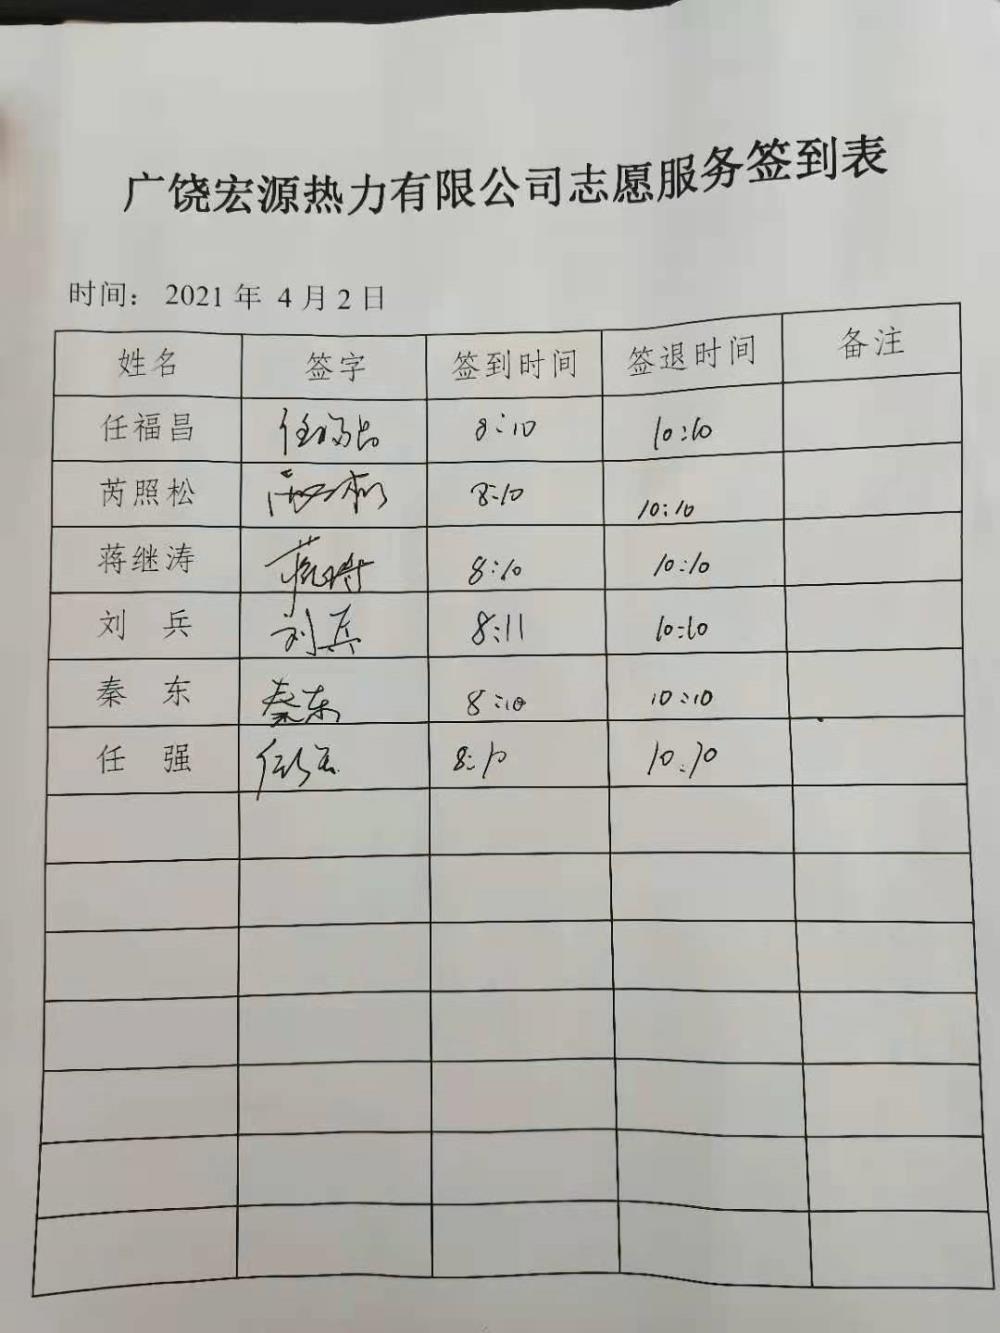 广饶宏源热力有限公司志愿服务签到表
时间： 2021 年 4 月 2 日
姓名 签字 签到时间 签退时间 备注
任福昌 任福昌 8:10 10:10
芮照松 8:10 10:10
蒋继涛 8:10 10:10
刘 兵 刘兵 8:11 10:10
秦 东 秦东 8:10 10:10
任 强 任强 8:10 10:10